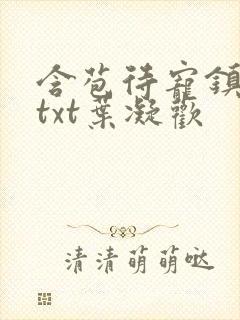 含苞待寵鎮
txt葉凝歡
清清萌萌噠